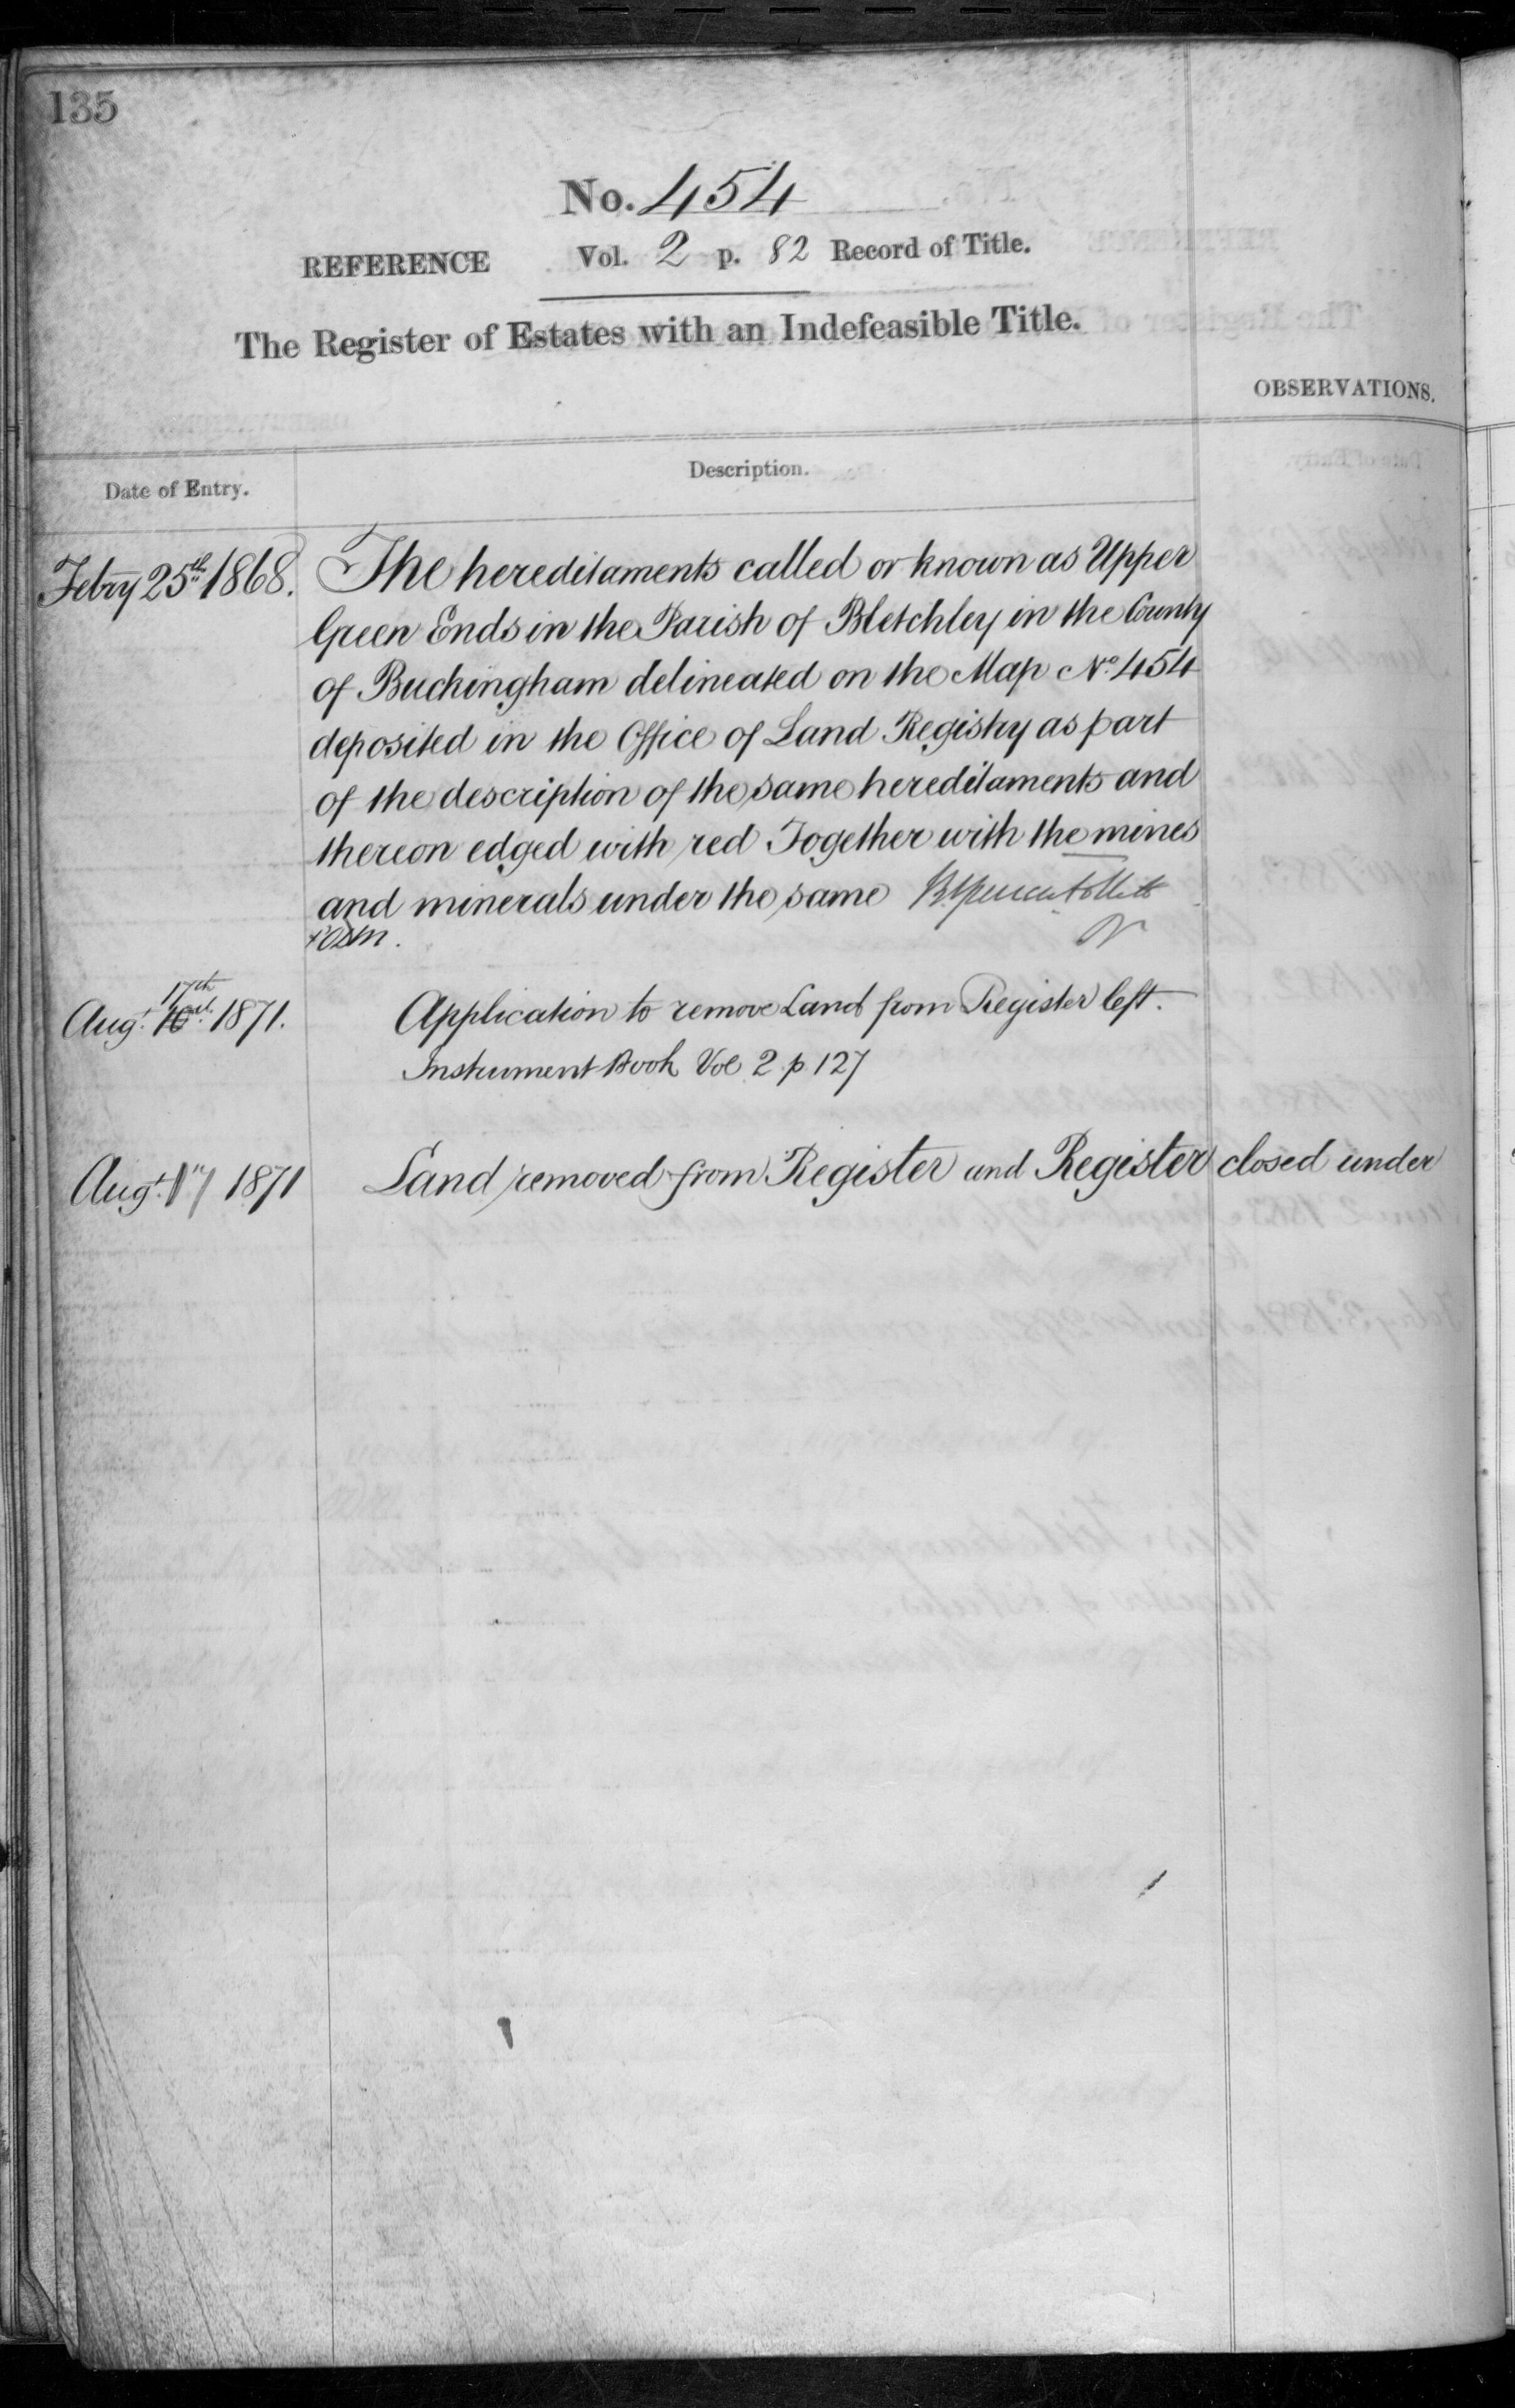 135
No. 454
REFERENCE Vol. 2 p. 82 Record of Title.
The Register of Estates with an Indefeasible Title.
OBSERVATIONS.
Date of Entry.
Description.
Febry 25th 1868. The hereditaments called or known as Upper
Green Ends in the Parish of Bletchley in the County
of Buckingham delineated on the Map No. 454
deposited in the Office of Land Registry as part
of the description of the same hereditaments and
thereon edged with red Together with the mines
and minerals under the same
17th
Augt. 1871. Application to remove Land from Register left.
Instrument Book Vol 2 p 127
Augt. 17 1871 Land removed from Register and Register closed under